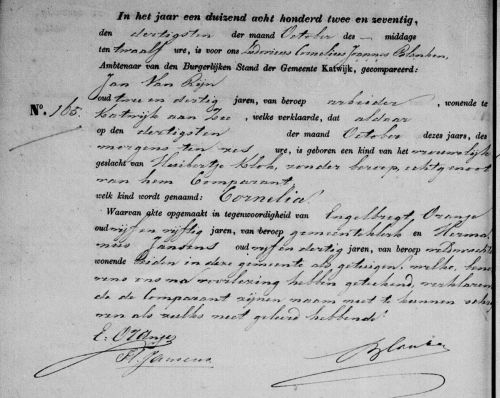 In het jaar een duizend acht honderd twee en zeventig,
den dertigsten der maand October des — middags
ten twaalf ure, is voor ons Ludovicus Cornelius Joannes Blanken,
Ambtenaar van den Burgerlijken Stand der Gemeente Katwijk, gecompareerd:
Jan Van Rijn
oud twee en dertig jaren, van beroep arbeider, wonende te
No. 165. Katwijk aan Zee, welke verklaarde, dat aldaar
op den dertigsten der maand October dezes jaars, des
morgens ten zes ure, is geboren een kind van het vrouwelijk
geslacht van Huibertje Klok, zonder beroep, echtgenoot
van hem Comparant,
welk kind wordt genaamd: Cornelia.
Waarvan akte opgemaakt in tegenwoordigheid van Engelbregt Oranje
oud vijf en vijftig jaren, van beroep gemeenteklerk en Herma
nus Jansens oud vijf en dertig jaren, van beroep
wonende Beiden in deze gemeente als getuigen, welke, bene
vens ons na voorlezing hebben geteekend, verklarende
de Comparant zijnen naam niet te kunnen schrij
ven als zulks niet geleerd hebbende.
E: Oranje
H. Jansens Blanken